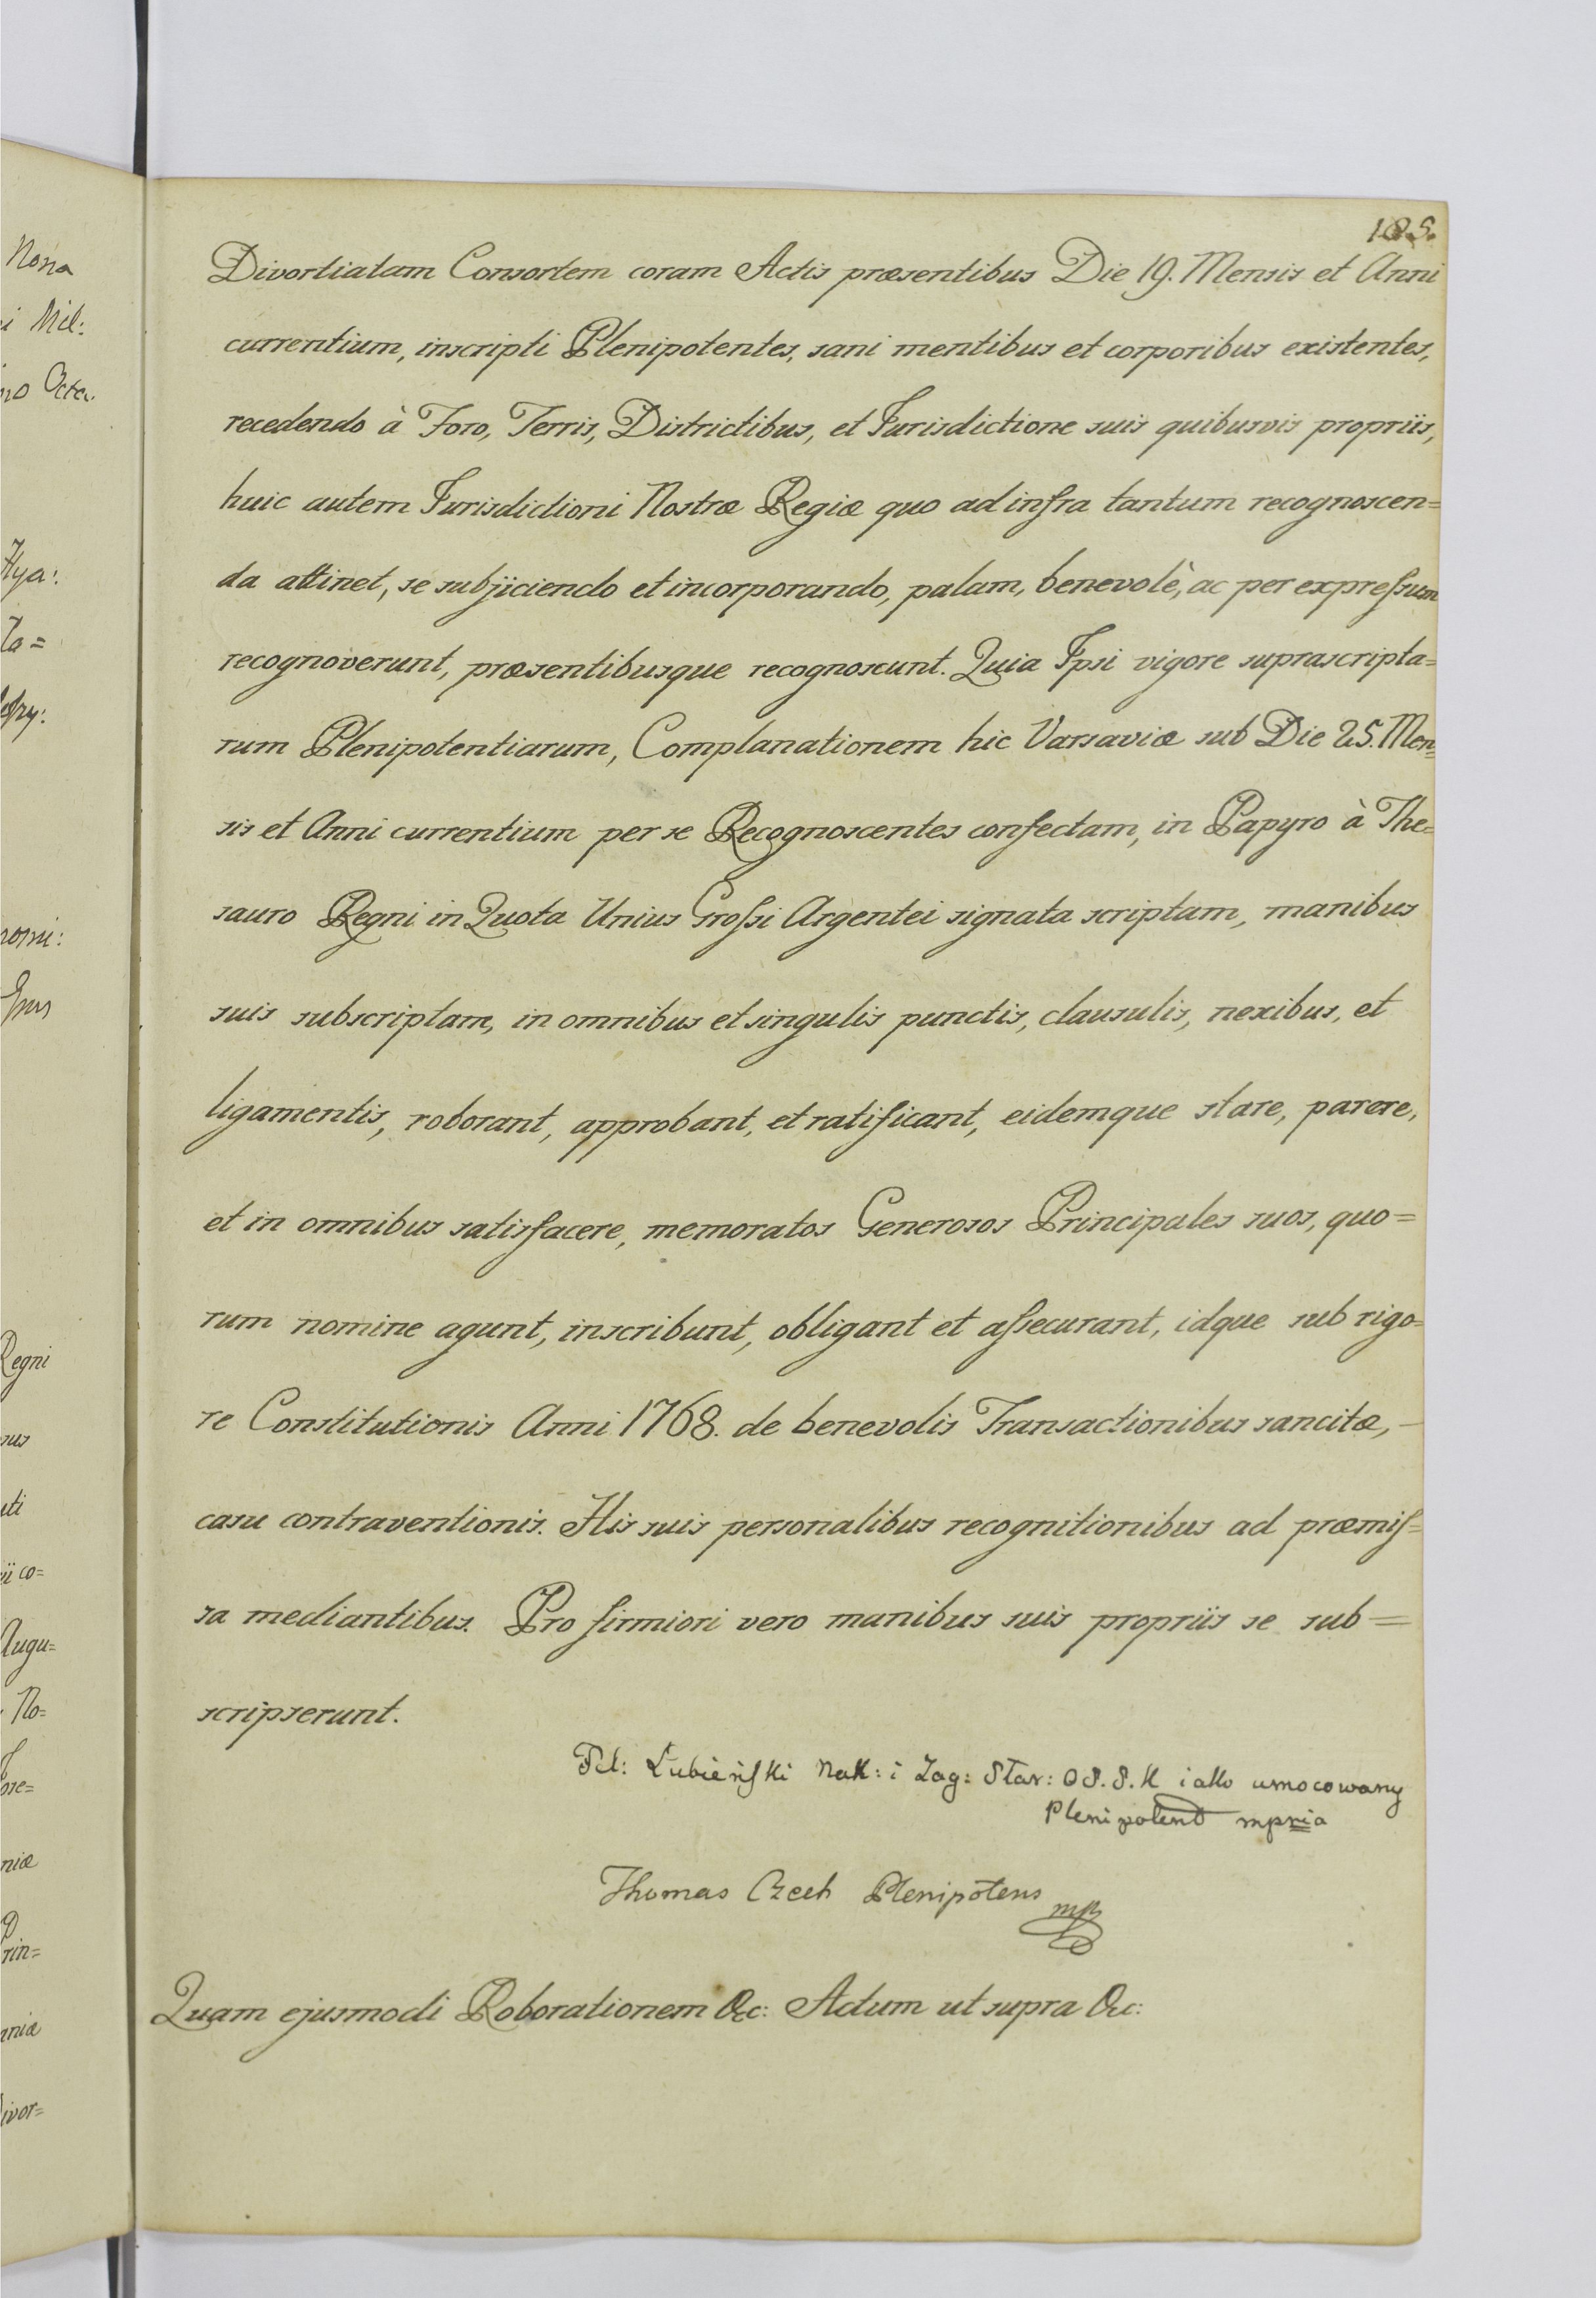 Nona
i Mil:
no Octa.
Hya:
Ta=
nomi:
Regni
sus
uti
ii co=
Augu=
No=
niæ
rin=
ivor=
185.
Divortiatam Consortem coram Actis præsentibus Die 19. Mensis et Anni
currentium, inscripti Plenipotentes, sani mentibus et corporibus existentes,
recedendo à Foro, Terris, Districtibus, et Jurisdictione suis quibusvis propriis,
huic autem Jurisdictioni Nostræ Regiæ quo ad infra tantum recognoscen=
da attinet, se subjiciendo et incorporando, palam, benevolè, ac per expreſsum
recognoverunt, præsentibusque recognoscunt. Quia Ipsi vigore suprascripta=
rum Plenipotentiarum, Complanationem hic Varsaviæ sub Die 25. Men=
sis et Anni currentium per se Recognoscentes confectam, in Papyro à The=
sauro Regni in Quota Unius Groſsi Argentei signata scriptam, manibus
suis subscriptam, in omnibus et singulis punctis, clausulis, nexibus, et
ligamentis, roborant, approbant, et ratificant, eidemque stare, parere,
et in omnibus satisfacere, memoratos Generosos Principales suos, quo=
rum nomine agunt, inscribunt, obligant et aſsecurant, idque sub rigo=
re Constitutionis Anni 1768. de benevolis Transactionibus sancitæ, -
casu contraventionis. His suis personalibus recognitionibus ad præmiſ=
sa mediantibus. Pro firmiori vero manibus suis propriis se sub=
scripserunt.
Fel: Łubieńſki Nak: i Zag: Star: OS. S. K iako umocowany
Plenipotent mpria
Thomas Czech Plenipotens mp
Quam ejusmodi Roborationem &c: Actum ut supra &c: